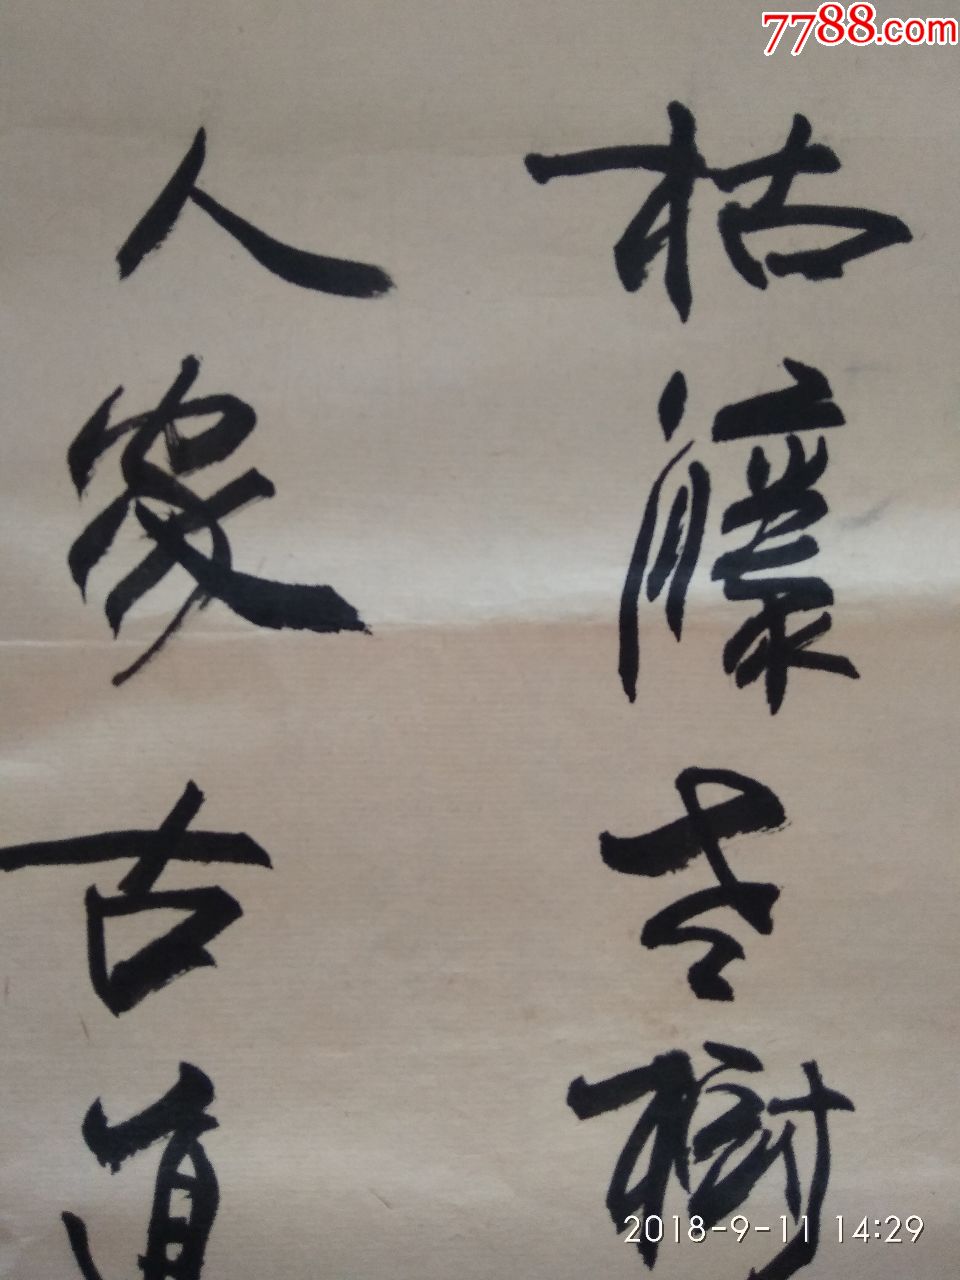 7788.com
枯藤老樹
人家古道
2018-9-11 14:29